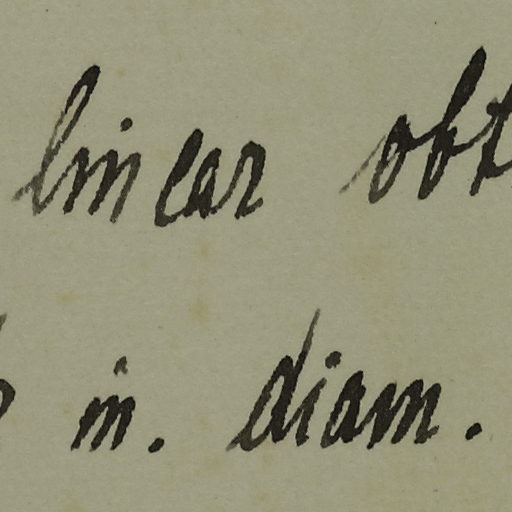 linear obt
in. diam.